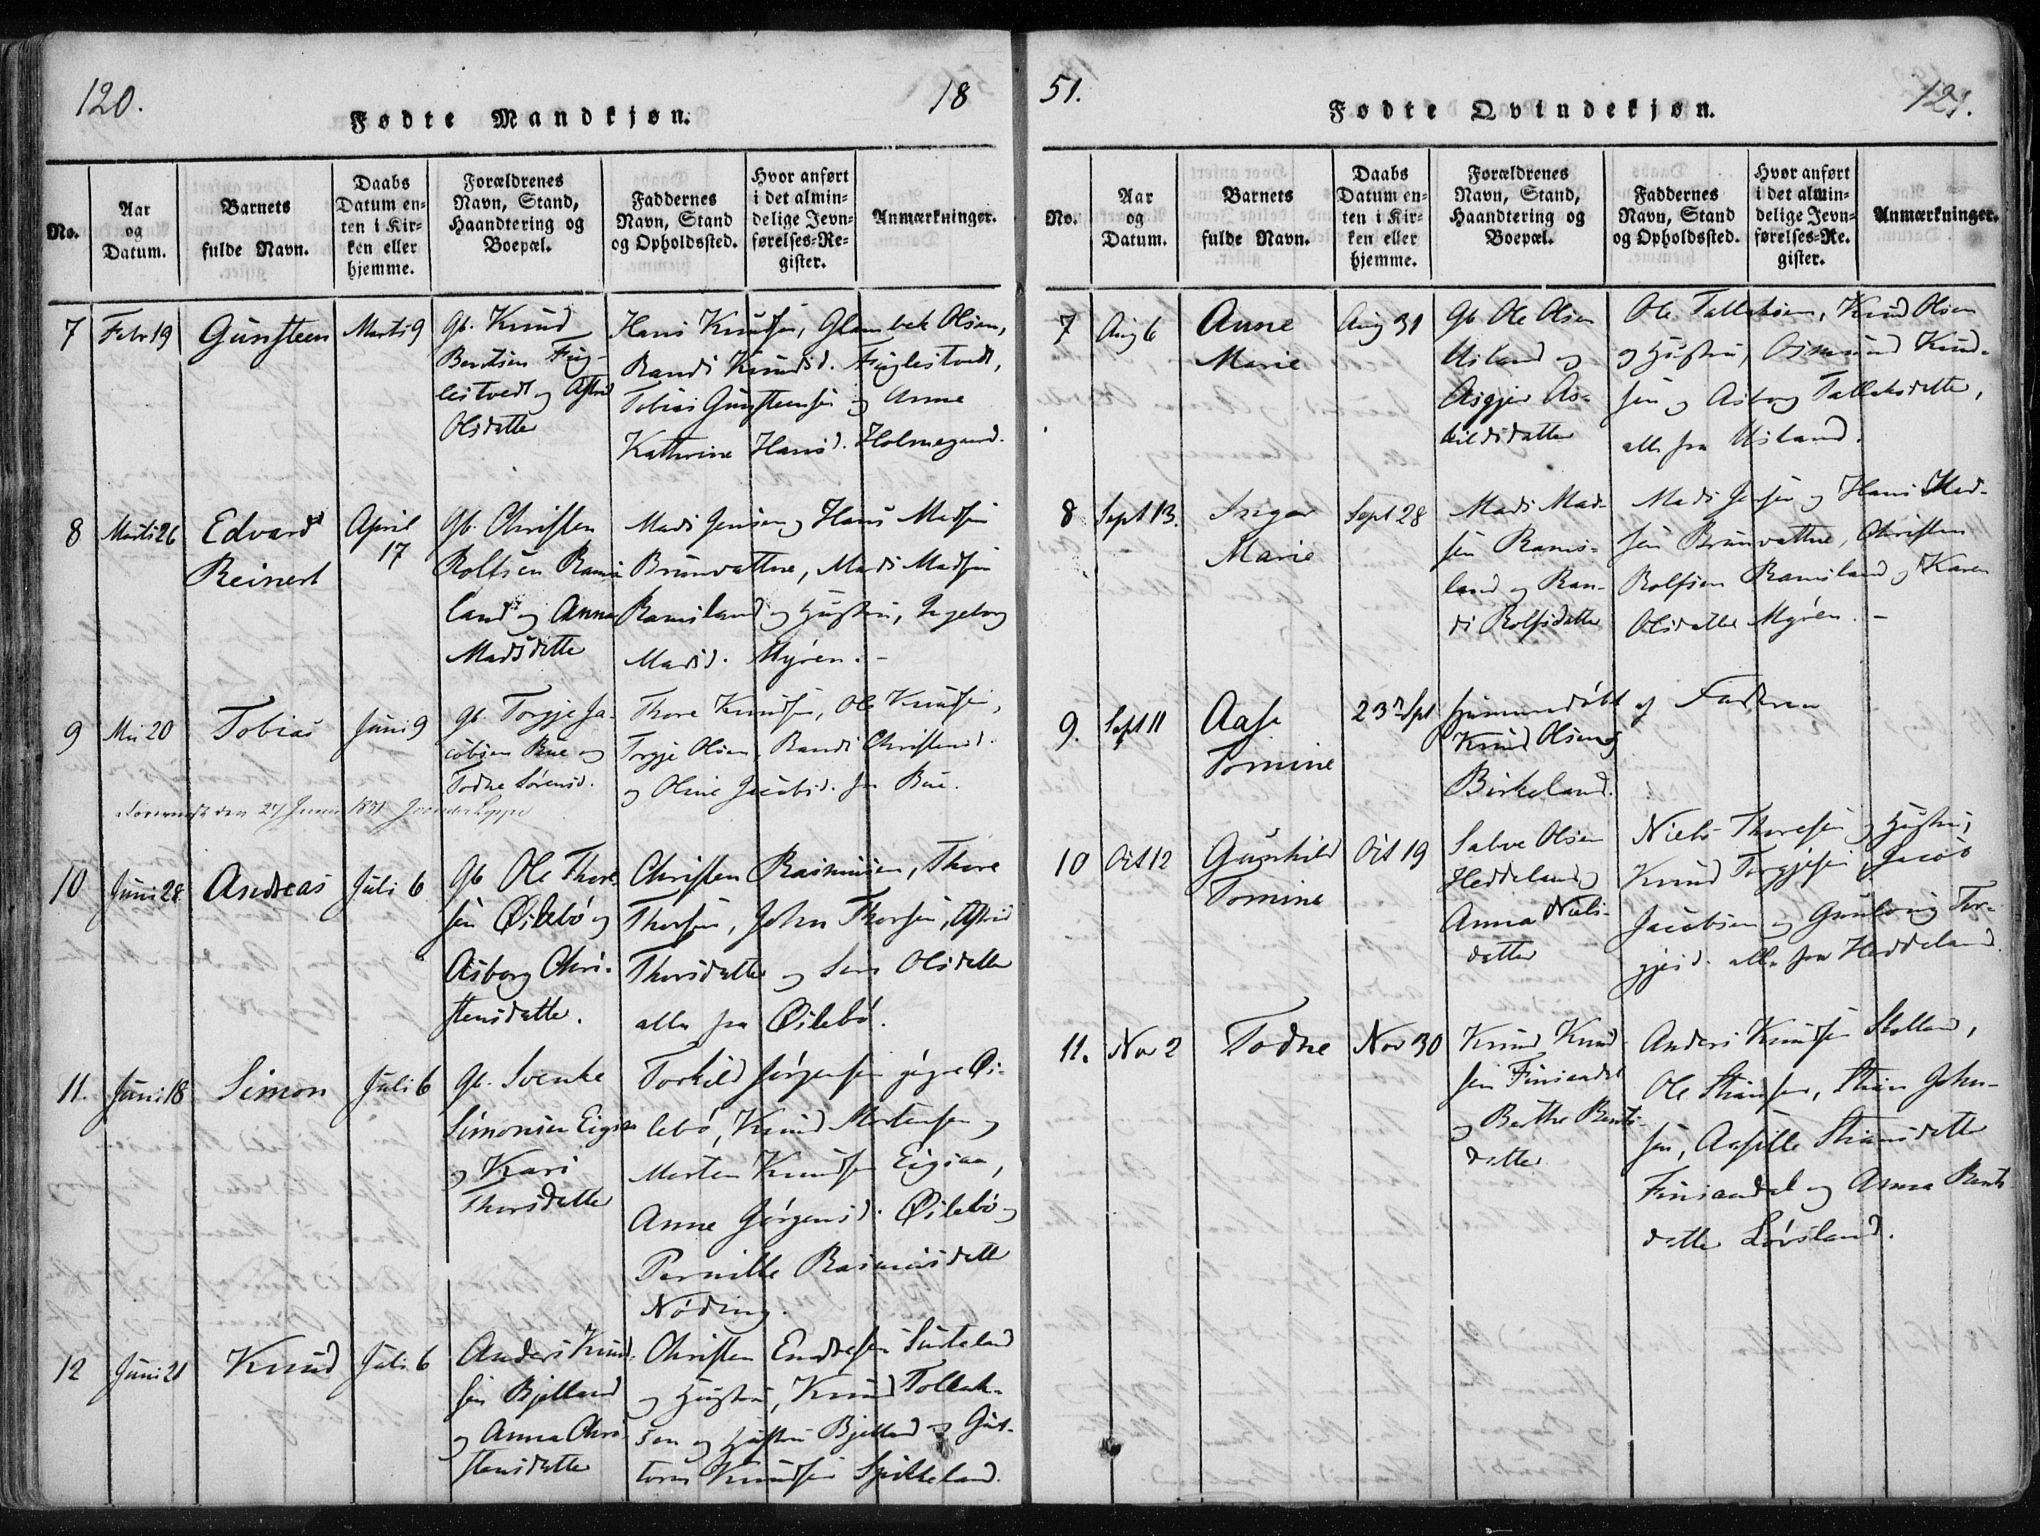 120.
18
Fødte Mandkjøn.
No.
Aar
og
Datum.
Barnets
fulde Navn.
Daabs
Datum en-
ten i Kir-
ken eller
hjemme.
Forældrenes
Navn, Stand,
Haandtering og
Boepæl.
Faddernes
Navn, Stand
og Opholdssted.
Hvor anført
i det almin-
delige Jevn-
førelses-Re-
gister.
Anmærkninger.
7
Febr 19
Gunsteen
Marts 9
Gb. Knud
Berntsen Fug-
lestvedt og Astrid
Olsdatter
Hans Knudsen, Glambek Olsen,
Randi Knudsd. Fuglestvedt,
Tobias Gunsteensen og Anne
Kathrine Hansd. Holmegaard.
8
Marts 26
Edvard
Reinert
April
17
Gb. Christen
Rolfsen Rams
land og Anna
Madsdatter
Mads Jensen og Hans Madsen
Brunvattne, Mads Madsen
Ramsland og Hustru, Ingeborg
Madsd. Myren.
9
Mai 20
Tobias
Juni 9
Gb. Torgje Ja-
cobsen Bue og
Todne Sørensd.
Thore Knudsen, Ole Knudsen,
Torgje Olsen, Randi Christensd.
og Oline Jacobsd. fra Bue.
den 27 Juni 1851
10
Juni 28
Andreas
Juli 6
Gb. Ole Thor
sen Øilebø og
Asborg Chri-
stensdatter.
Christen Rasmussen, Thore
Thorsen, John Thorsen, Astrid
Thorsdatter og Olsdatter
alle fra Øilebø.
11.
Juni 18
Simon
Juli 6
Gb. Svenke
Simonsen Eigaa
og Kari
Thorsdatter
Torkild Jørgensen Øi-
lebø, Knud Mortensen og
Morten Knudsen Eigaa,
Anne Jørgensd. Øilebø og
Pernille Rasmusdatter
Nøding.
12
Juni 21
Knud
Juli 6
Anders Knud-
sen Bjelland
og Anna Chri-
stensdatter
Christen Endresen
og Hustru, Knud Tollak-
sen og Hustru Bjelland og Gut-
torm Knudsen Spikkeland.
51.
121.
Fødte Qvindekjøn.
No.
Aar
og
Datum.
Barnets
fulde Navn.
Daabs
Datum en-
ten i Kir-
ken eller
hjemme.
Forældrenes
Navn, Stand,
Haandtering og
Boepæl.
Faddernes
Navn, Stand
og Opholdssted.
Hvor anført
i det almin-
delige Jevn-
førelses-Re.
gister.
Anmærkninger.
7
Aug 6
Anne
Marie
Aug 31
Gb. Ole Olsen
Usland og
Asgjer As-
kildsdatter
Ole Tallaksen, Knud Olsen
og Hustru, Osmund Knud-
sen og Asborg Tallaksdatter,
alle fra Usland.
8
Sept 13.
Inger
Marie
Sept 28
Mads Mad-
sen Rams-
land og Ran-
di Rolfsdatter
Mads Jensen og Hans Mad-
sen Brunvattne, Christen
Rolfsen Ramsland og Karen
Olsdatter Myren.
9.
Sept 11
Aase
Tomine
23 Spt
hjemmedøbt af Faderen
Knud Olsen
Birkeland.
10
Oct 12
Gunhild
Tomine
Oct 19
Salve Olsen
Heddeland og
Anna Niels-
datter
Niels Thoresen og Hustru,
Knud Torgjesen, Jacob
Jacobsen og Gunlaug Tor-
gjesd. alle fra Heddeland.
11.
Nov 2
Todne
Nov 30
Knud Knud
sen Finsaadal
og Berthe Bents-
datter
Anders Knudsen Stalland,
Ole Stiansen, Stian John-
sen, Aasille Stiansdatter
Finsaadal og Anna Bents
datter Løvsland.